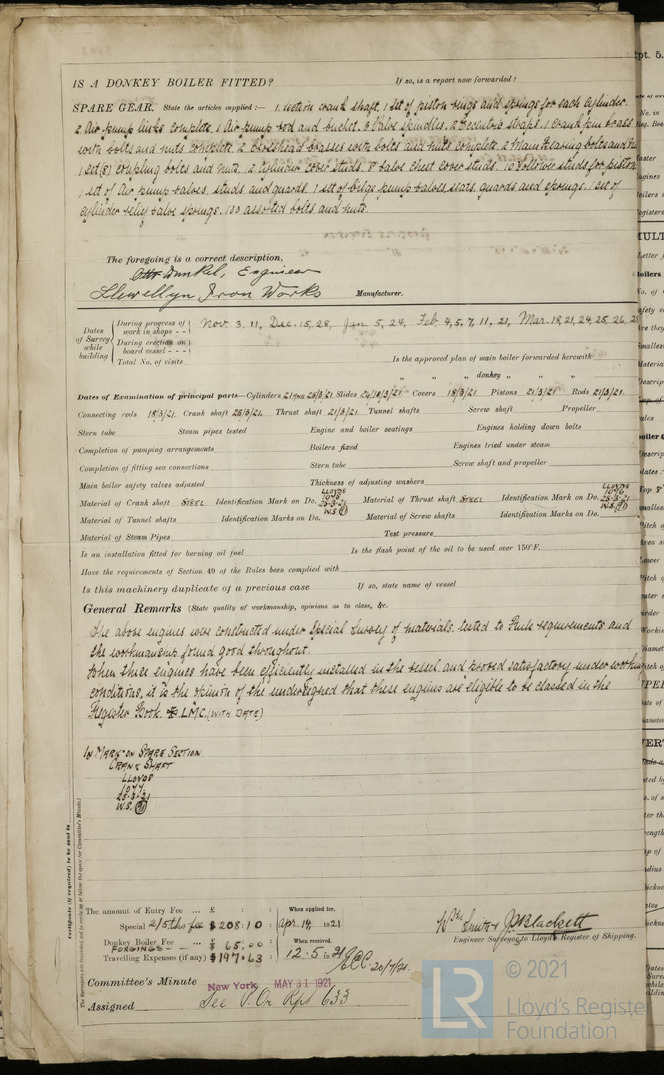 IS A DONKEY BOILER FITTED? If so, is a report now forwarded?
SPARE GEAR. State the articles supplied:— 1 section crank shaft, 1 set of piston rings and springs for each cylinder.
2 Air pump links complete, 1 Air pump rod and bucket. 3 Valve spindles. 2 Eccentric straps. 1 crank pin brass
with bolts and nuts complete. 2 Crosshead brasses with bolts and nuts complete. 2 Main bearing bolts and
1 set (8) coupling bolts and nuts. 12 cylinder cover studs. 8 valve chest cover studs. 10 follower studs for piston
1 set of Air pump valves, studs and guards. 1 set of bilge pump valves, seats, guards and springs. 1 set of
cylinder relief valve springs. 150 assorted bolts and nuts.
The foregoing is a correct description,
Otto Dunkel, Engineer
Llewellyn Iron Works Manufacturer.
Dates of Survey while building
During progress of work in shops - - Nov. 3. 11, Dec. 15, 28, Jan. 5, 24, Feb. 4, 5, 7, 11, 21, Mar. 18, 21, 24, 25, 26,
During erection on board vessel - - -
Total No. of visits
Is the approved plan of main boiler forwarded herewith
" " donkey " "
Dates of Examination of principal parts—Cylinders 25/3/21 Slides 24/3/21 Covers 18/3/21 Pistons 21/3/21 Rods 21/3/21
Connecting rods 18/3/21 Crank shaft 25/3/21 Thrust shaft 21/3/21 Tunnel shafts Screw shaft Propeller
Stern tube Steam pipes tested Engine and boiler seatings Engines holding down bolts
Completion of pumping arrangements Boilers fixed Engines tried under steam
Completion of fitting sea connections Stern tube Screw shaft and propeller
Main boiler safety valves adjusted Thickness of adjusting washers
Material of Crank shaft STEEL Identification Mark on Do. LLOYDS 1045 25-3-21 W.S. Material of Thrust shaft STEEL Identification Mark on Do. LLOYDS 1046 25-3-21 W.S.
Material of Tunnel shafts Identification Marks on Do. Material of Screw shafts Identification Marks on Do.
Material of Steam Pipes Test pressure
Is an installation fitted for burning oil fuel Is the flash point of the oil to be used over 150°F.
Have the requirements of Section 49 of the Rules been complied with
Is this machinery duplicate of a previous case If so, state name of vessel
General Remarks (State quality of workmanship, opinions as to class, &c.
The above engines were constructed under Special Survey of materials, tested to Rule requirements and
the workmanship found good throughout.
When these engines have been efficiently installed in the vessel and proved satisfactory under working
conditions, it is the opinion of the undersigned that these engines are eligible to be classed in the
Register Book. ✠ LMC. (WITH DATE)
IN MARK ON SPARE SECTION
CRANK SHAFT
LLOYDS
1047
25-3-21
W.S.
Certificate (if required) to be sent to
The Surveyors are requested not to write on or below the space for Committee's Minute.
The amount of Entry Fee ... £ : : When applied for,
Special 2/5ths fee $208.10 : Apr. 14, 1921
Donkey Boiler Fee ... $ 65.00 : When received,
FORGINGS
Travelling Expenses (if any) $197.63 : 12.5.1921
20/7/21
Wm Smith & J. Blackett
Engineer Surveyor to Lloyd's Register of Shipping.
Committee's Minute New York MAY 31 1921
Assigned See V. Or Rpt 633
LR
© 2021
Lloyd's Register
Foundation